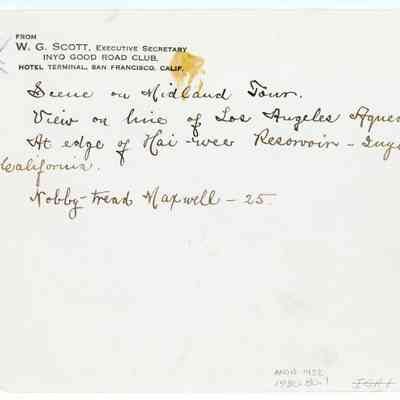 FROM
W. G. SCOTT, EXECUTIVE SECRETARY
INYO GOOD ROAD CLUB,
HOTEL TERMINAL, SAN FRANCISCO, CALIF.
Scene on Midland Tour.
View on line of Los Angeles Aqued
At edge of Hai-wee Reservoir - Inyo
California.
Nobby-tread Maxwell - 25.